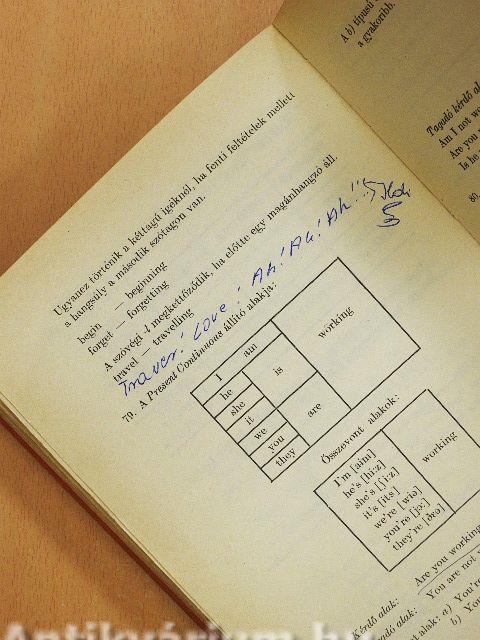 A b) típusú
a gyakoribb.
Ugyanez történik a kéttagú igéknél, ha fenti feltételek mellett
a hangsúly a második szótagon van.
begin — beginning
forget — forgetting
A szóvégi -l megkettőződik, ha előtte egy magánhangzó áll.
travel — travelling
Love! Ah! Ah! Ah!
79. A Present Continuous állító alakja:
I am
he
she
it
is
we
you
they
are
working
Összevont alakok:
I'm [aim]
he's [hi:z]
she's [ʃi:z]
it's [its]
we're [wiə]
you're [jɔ:]
they're [ðeə]
working
Kérdő alak: Are you working
You are not
a) You're
b) You
Tagadó kérdő
Am I not
Are you
Is he
80.
Antikvárium.hu